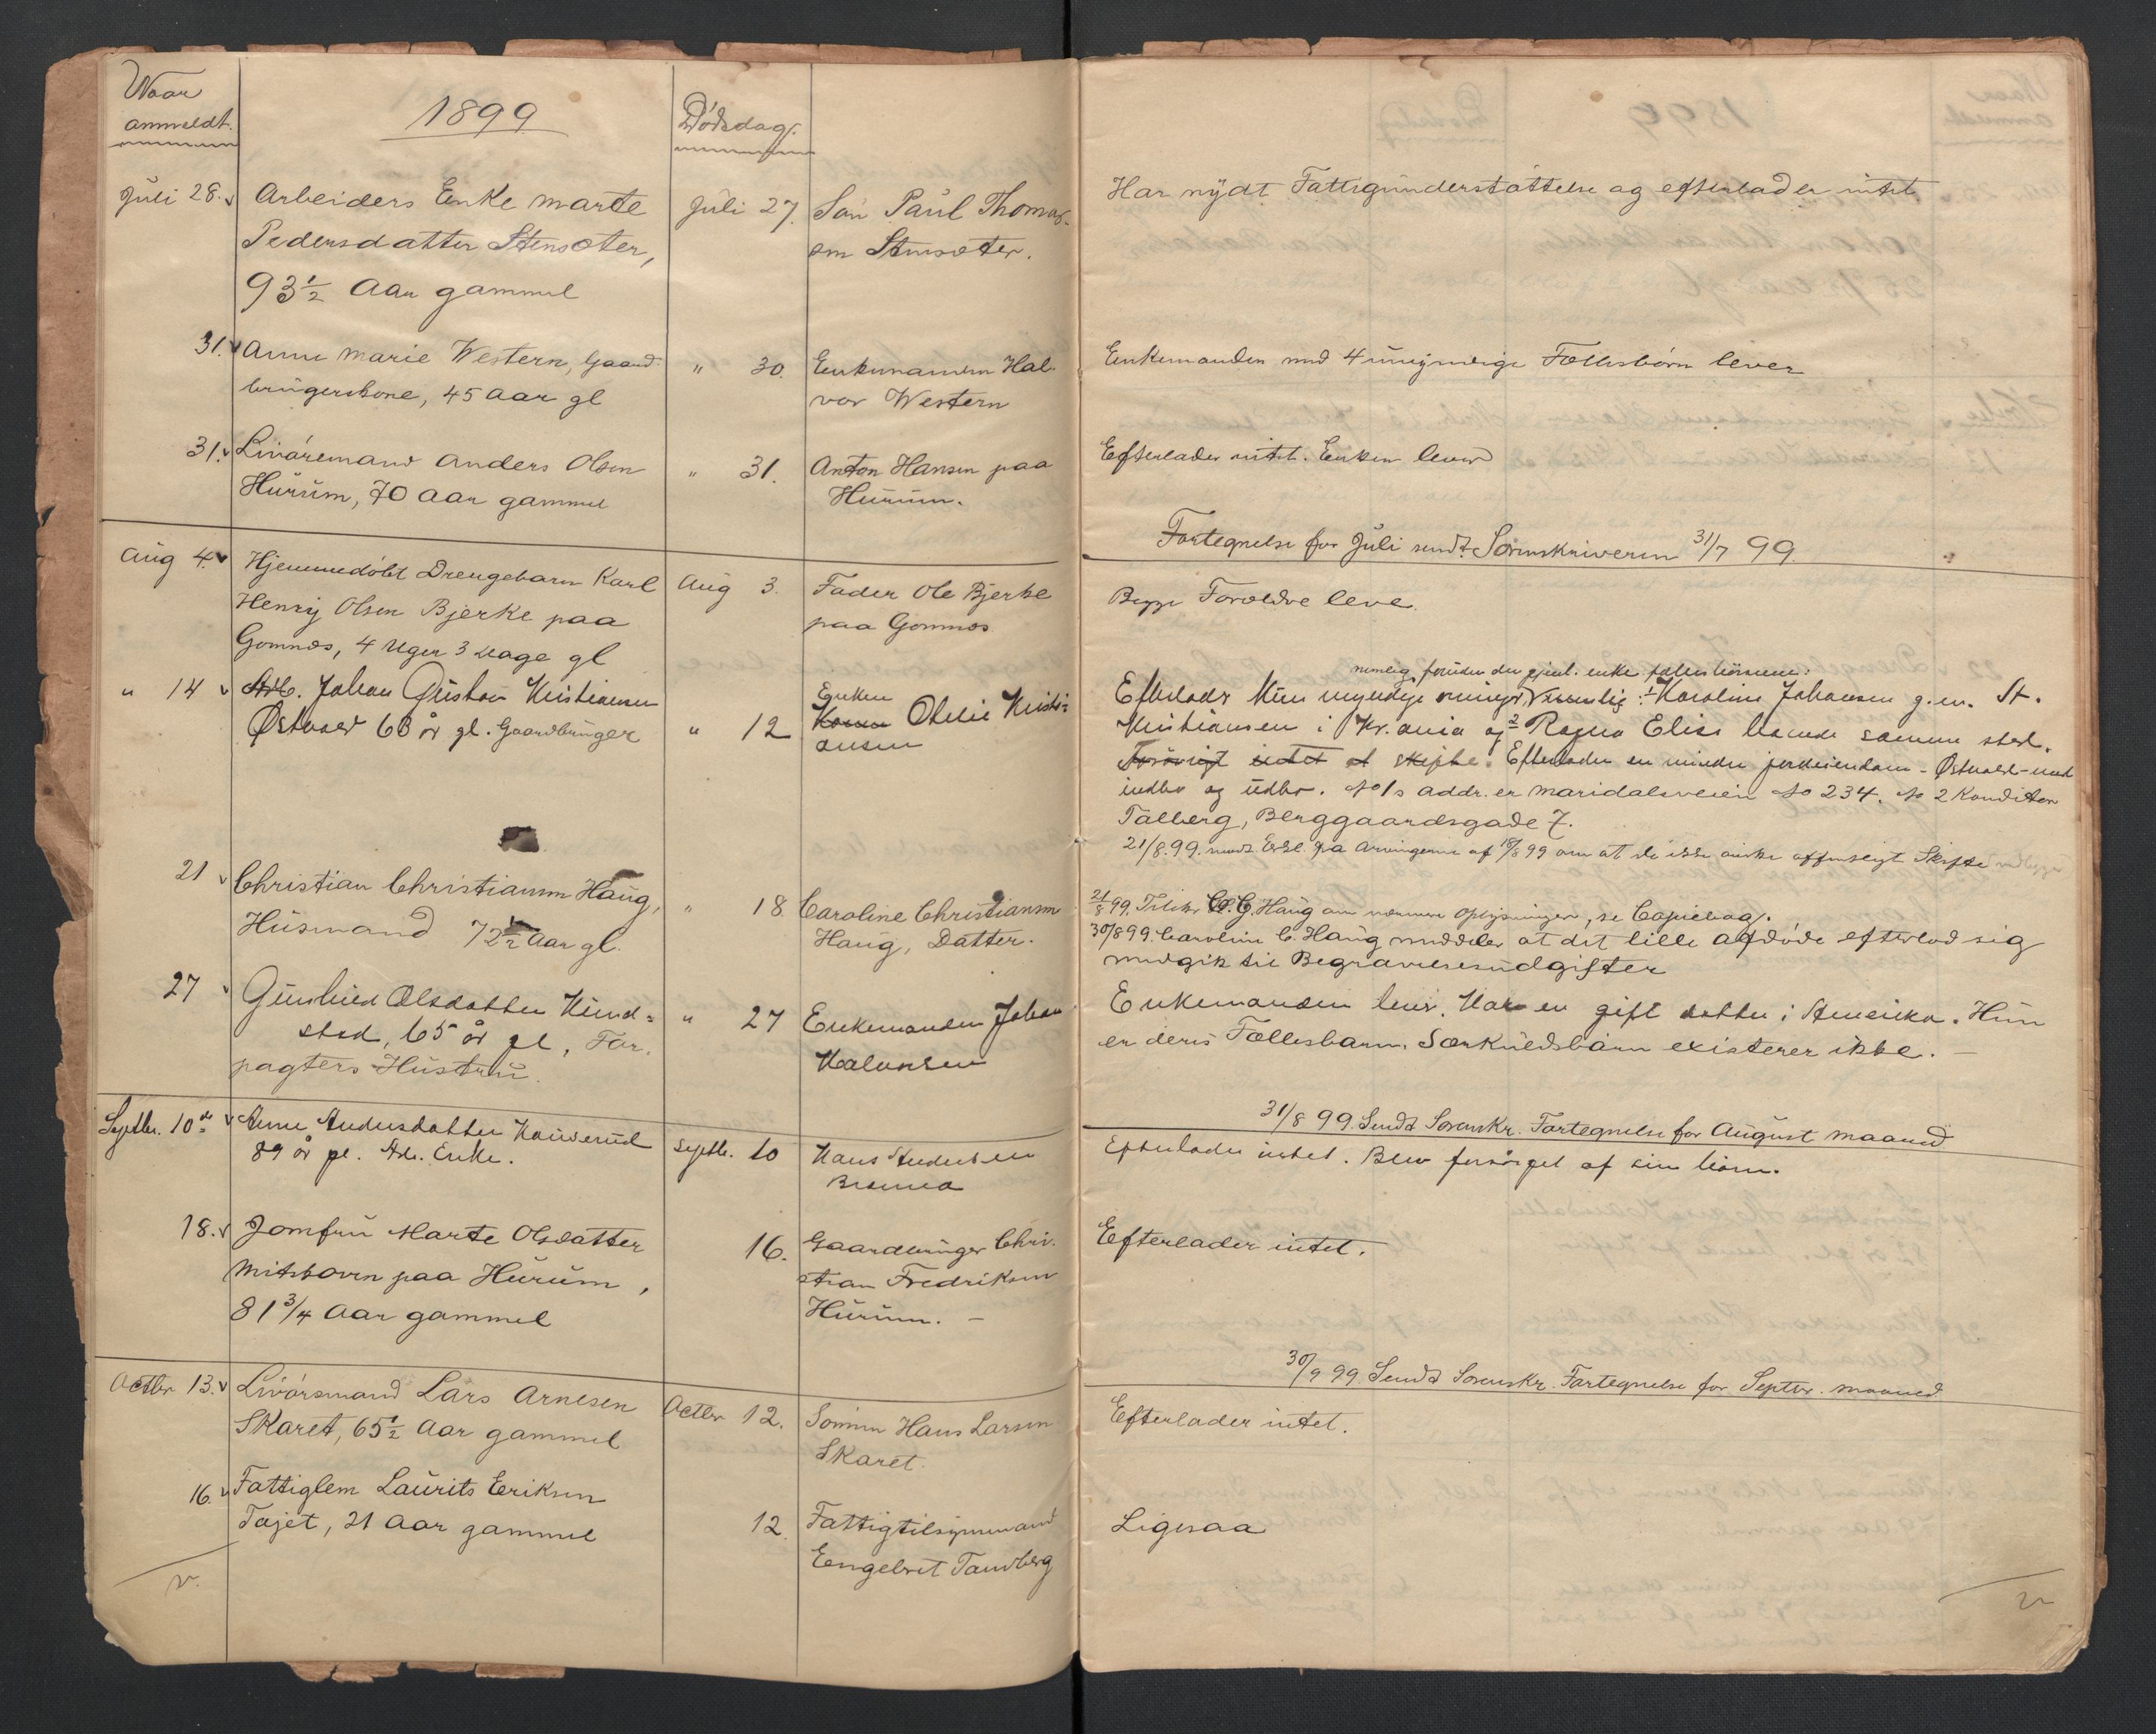 Naar
anmeldt.
1899
Dødsdag.
Juli 28.
Arbeiders Enke Marte
Pedersdatter Stensæter,
93½ Aar gammel
Juli 27.
Søn Paul Thomas-
sen Stensæter.
Har nydt Fattigunderstøttelse og efterlader intet
31.
Anne Marie Western, Gaard-
brugerskone, 45 Aar gl
" 30.
Enkemanden Hal-
vor Western
Enkemanden med 4 umyndige Fællesbørn lever
31.
Livøremand Anders Olsen
Hurum, 70 Aar gammel
" 31.
Anton Hansen paa
Hurum.
Efterlader intet. Enken lever
Fortegnelse for Juli sendt Sorenskriveren 31/7 99.
Aug 4.
Hjemmedøbt Drengebarn Karl
Henry Olsen Bjerke paa
Gomnæs, 4 Uger 3 Dage gl
Aug 3.
Fader Ole Bjerke
paa Gomnæs
Begge Forældre leve.
" 14
Arb. Johan Gustav Kristiansen
Østvold 63 år gl. Gaardbruger
" 12
Enken
Othilie Kristi=
ansen
nemlig, foruden den gjenl. enke følles børnene:
Efterlader kun myndige arvinger 1 Karoline Johansen g. m. St.
Kristiansen i Kr.ania og 2 Ragna Elise boende samme sted.
Forøvrigt intet at skifte. Efterlader en mindre jordeiendom - Østvold - med
indbo og udbo. No 1s addr. er Maridalsveien No 234. No 2 Konditor
Talberg, Berggaardsgade 7.
21/8.99. Erkl fra Arvingerne af 18/8 99 om at de ikke ønske offentligt Skifte
21
Christian Christiansen Haug,
Husmand 72½ Aar gl.
" 18
Caroline Christiansen
Haug, Datter.
21/8 99. Tilskr C. C. Haug om nærmere Oplysninger, se Copiebog.
30/8 99. Caroline C. Haug meddeler at det lille afdøde efterlod sig
medgik til Begravelsesudgifter
27
Gunhild Olsdatter Kind=
sted, 65 år gl, For-
pagters Hustru.
" 27
Enkemanden Johan
Halvorsen
Enkemanden lever. Har en gift datter i Amerika. Hun
er deres Fællesbarn. Særkuldsbarn existerer ikke. —
31/8 99 Sendt Sorenskr. Fortegnelse for August maaned
Septbr. 10de
Anne Andersdatter
89 år gl. Arb. Enke.
Septb. 10
Hans Andersen
Efterlader intet. Blev forsørget af sine børn.
18.
Jomfru Marte Olsdatter
Mitskovn paa Hurum,
81 3/4 Aar gammel
16.
Gaardbruger Chri-
stian Fredriksen
Hurum. —
Efterlader intet.
30/9 99 Sendt Sorenskr. Fortegnelse for Septbr. maaned
Octbr 13.
Livørsmand Lars Arnesen
Skaret, 65½ Aar gammel
Octbr 12.
Sønnen Hans Larsen
Skaret.
Efterlader intet.
16.
Fattiglem Laurits Eriksen
Tajet, 21 Aar gammel
12.
Fattigtilsynsmand
Engebret Tandberg
Ligesaa